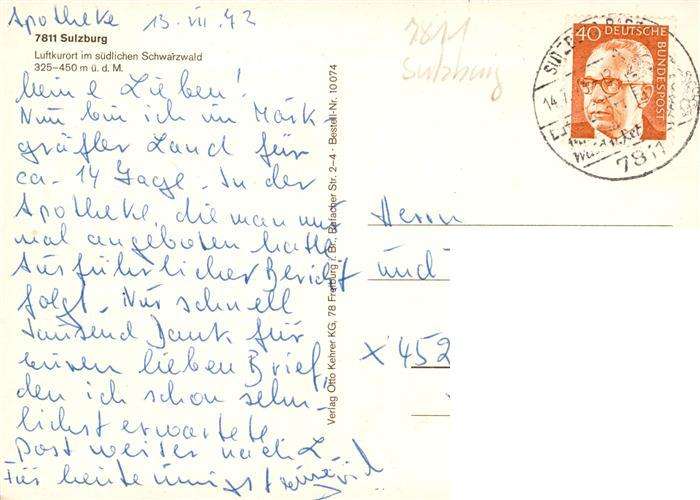 Apotheke 13. VII. 72
7811 Sulzburg
Luftkurort im südlichen Schwarzwald
325–450 m ü. d. M.
Meine Lieben!
Nun bin ich im Mark-
gräfler Land für
ca. 14 Tage. In der
Apotheke, die man mir
mal angeboten hatte.
Ausführlicher Bericht
folgt. Nur schnell
tausend Dank für
euren lieben Brief,
den ich schon sehn-
lichst erwartete
Post weiter nach L
Für heute innigst
Verlag Otto Kehrer KG, 78 Freiburg i. Br., Bötzinger Str. 2–4 · Bestell-Nr. 10074
7811
Sulzburg
40 DEUTSCHE
BUNDESPOST
7811
Herrn
und
x 452